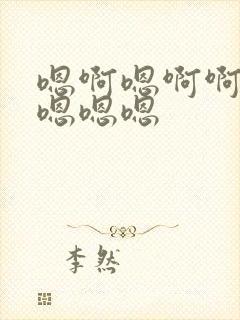 嗯啊嗯啊啊
嗯嗯嗯
李然